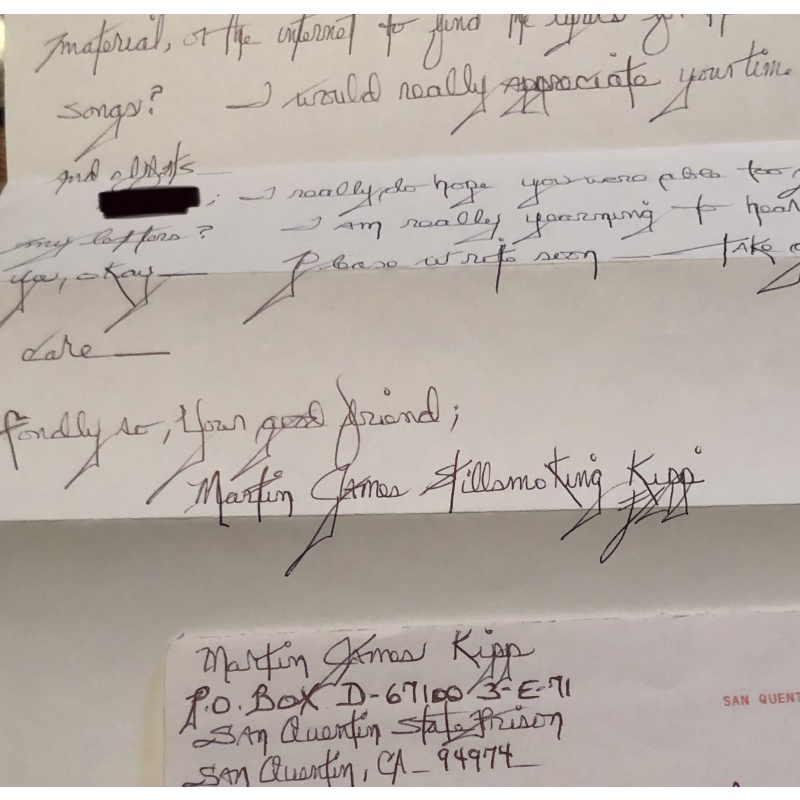 material, or the internet to find the lyrics
songs? I would really appreciate your time
and efforts
I really do hope you were able too
my letters? I am really yearning to hear
ya, okay— Please write soon — Take
care—
fondly so, Your good friend;
Martin James Stillsmoking Kipp
Martin James Kipp
P.O. BOX D-67100 3-E-71
SAn Quentin State Prison
SAn Quentin, CA_ 94974—
SAN QUENT